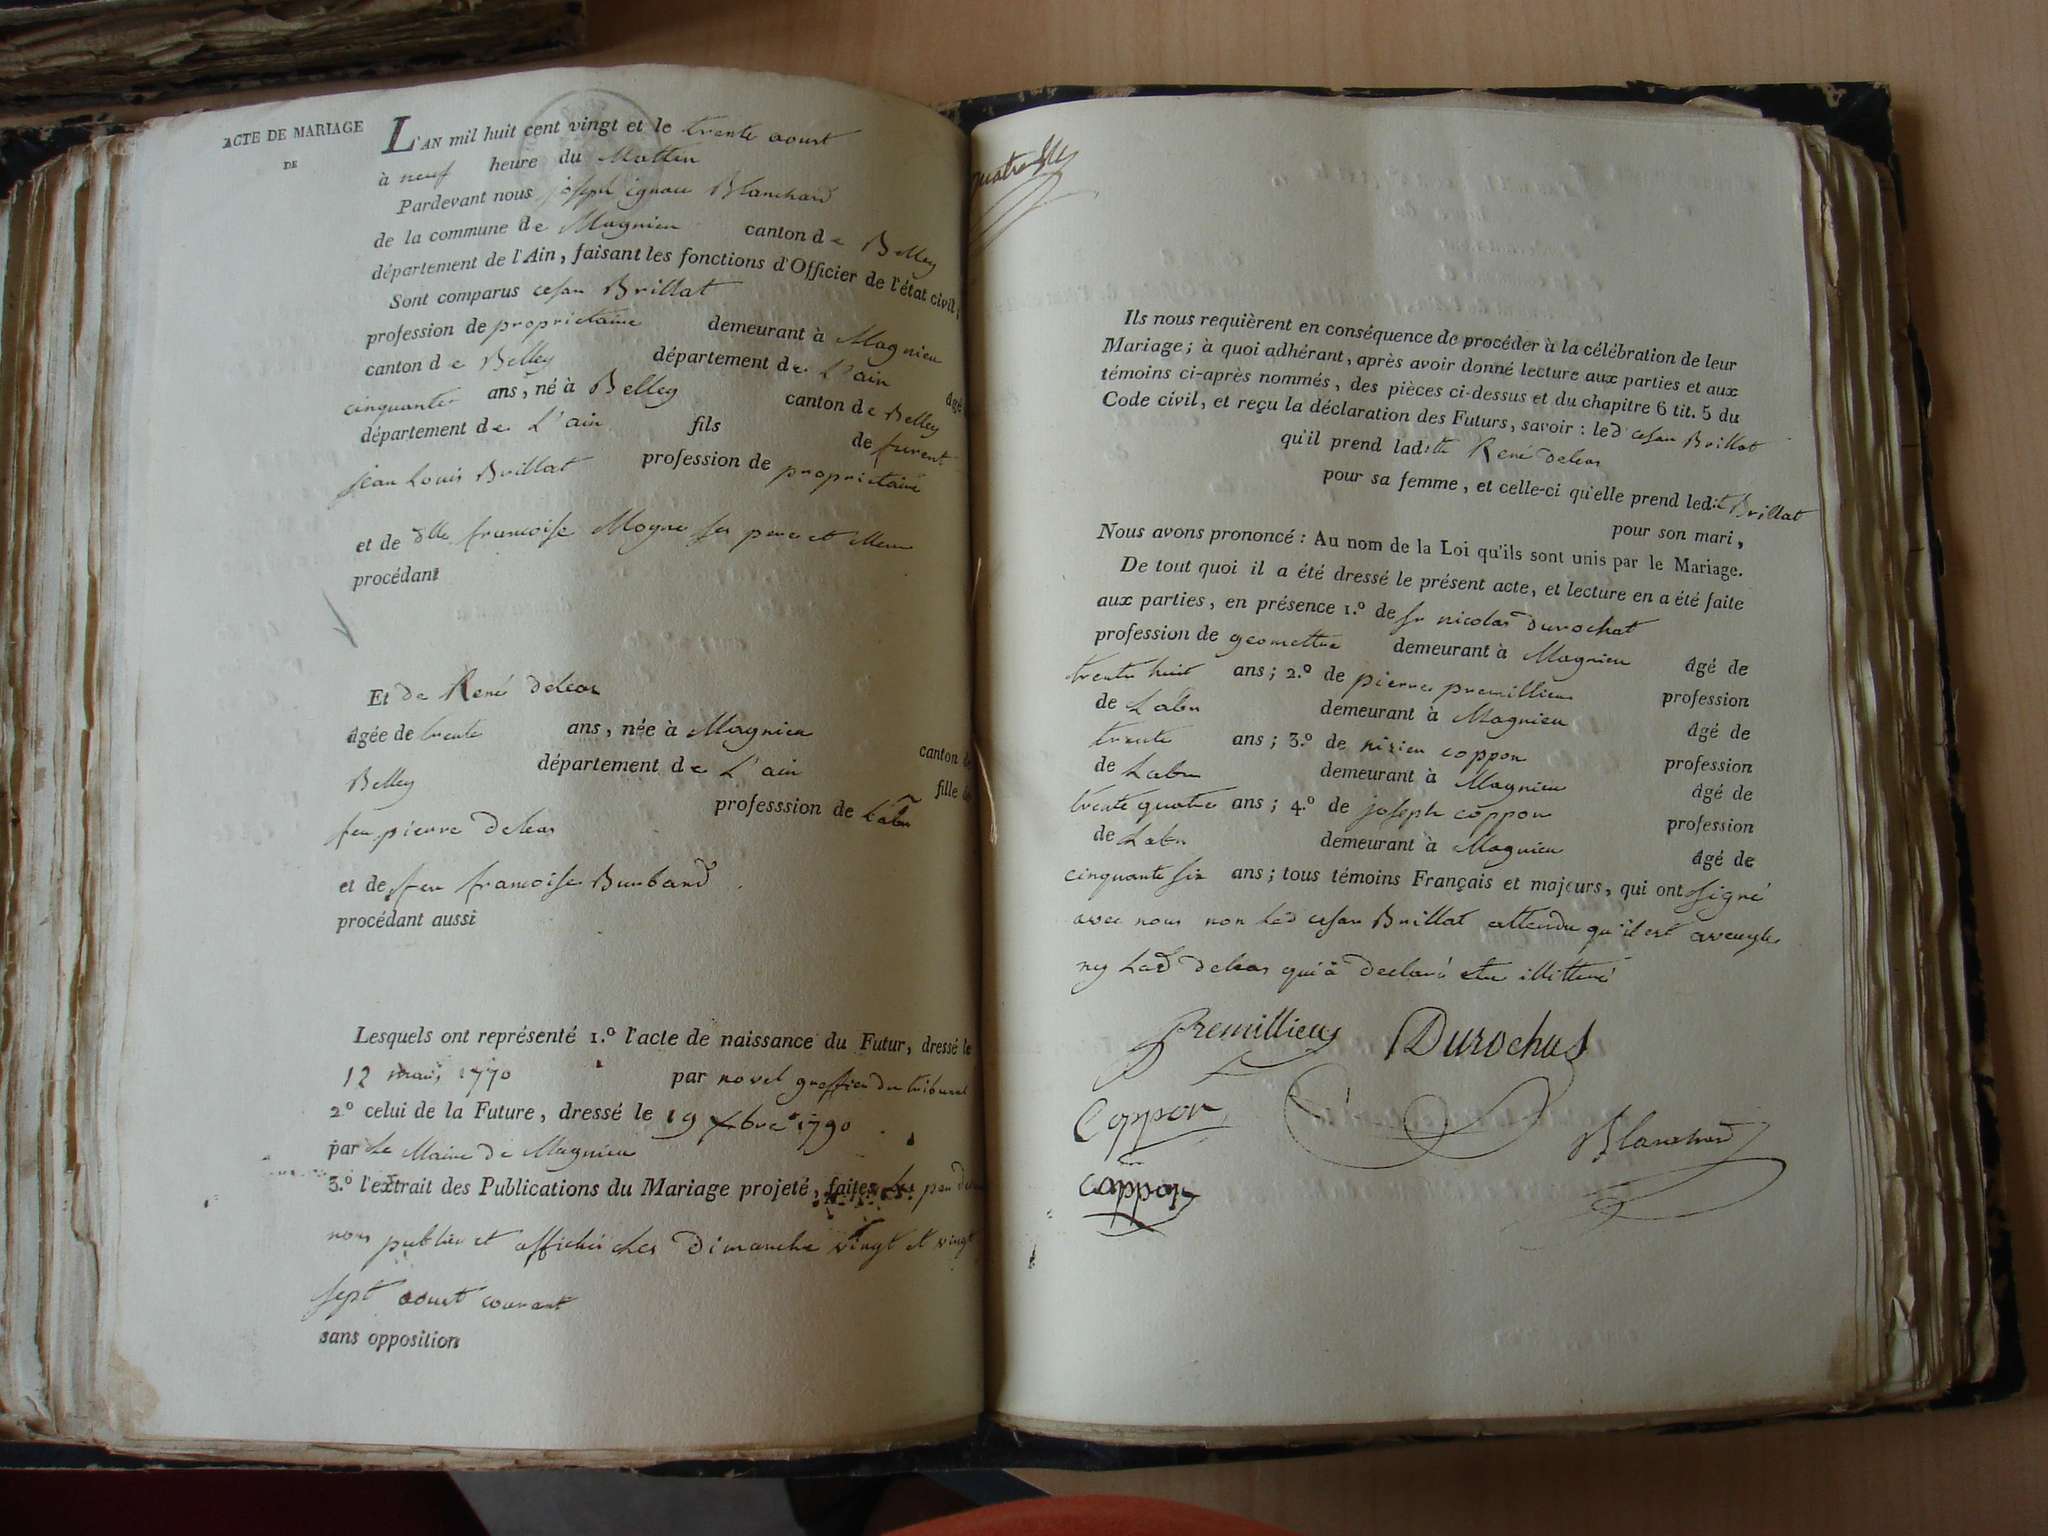 ACTE DE MARIAGE
DE
L'AN mil huit cent vingt et le trente aoust
à neuf heure du Mattin
Pardevant nous joseph ignace Blanchard
de la commune de Magnieu canton de Belley
département de l'Ain, faisant les fonctions d'Officier de l'état civil,
Sont comparus cesar Brillat
profession de proprietaire demeurant à Magnieu
canton de Belley département de L'ain âgé
cinquante ans, né à Belley canton de Belley
département de L'ain fils de furent
jean Louis Brillat profession de proprietaire
et de dlle francoise Moyne ses pere et Mere
procédant
Et de René deleas
âgée de trente ans, née à Magnieu canton de
Belley département de L'ain fille de
feu pierre deleas professsion de Labr
et de feu francoise Burband
procédant aussi
Lesquels ont représenté 1.º l'acte de naissance du Futur, dressé le
12 mars 1770 par novel greffier du tribunal
2º celui de la Future, dressé le 19 xbre 1790
par Le Maire de Magnieu
3.º l'extrait des Publications du Mariage projeté, faites par de
nous publier et affichées Dimanche vingt et vingt
sept aoust courant
sans opposition
quatre
Ils nous requièrent en conséquence de procéder à la célébration de leur
Mariage; à quoi adhérant, après avoir donné lecture aux parties et aux
témoins ci-après nommés, des pièces ci-dessus et du chapitre 6 tit. 5 du
Code civil, et reçu la déclaration des Futurs, savoir: led cesar Brillat
qu'il prend ladite René deleas
pour sa femme, et celle-ci qu'elle prend ledit Brillat
pour son mari,
Nous avons prononcé: Au nom de la Loi qu'ils sont unis par le Mariage.
De tout quoi il a été dressé le présent acte, et lecture en a été faite
aux parties, en présence 1.º de sr nicolas durochat
profession de geomettre demeurant à Magnieu âgé de
trente huit ans; 2.º de pierre premillieu profession
de Labr demeurant à Magnieu âgé de
trente ans; 3.º de nizieu coppon profession
de Labr demeurant à Magnieu âgé de
trente quatre ans; 4.º de joseph coppon profession
de Labr demeurant à Magnieu âgé de
cinquante six ans; tous témoins Français et majeurs, qui ont signé
avec nous non led cesar Brillat attendu qu'il est aveugle
ny lad deleas qui a declaré etre illitteré
Premillieu Durochat
Coppon
Blanchard
coppon